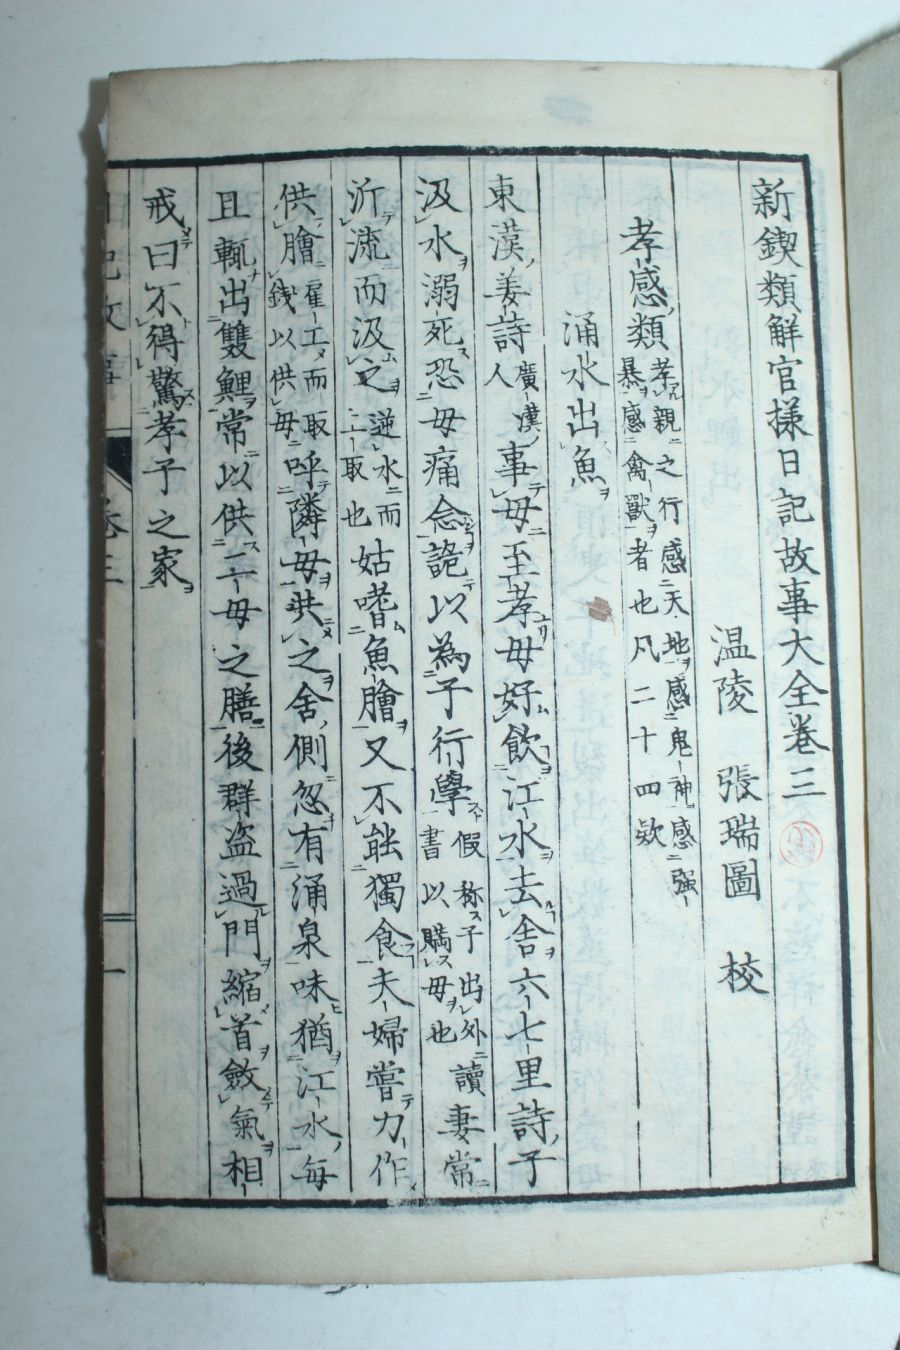 新鍥類解官様日記故事大全卷三
温陵 張瑞圖 校
孝感類 孝親之行感天地感鬼神感强
暴感禽獸者也凡二十四欵
涌水出魚
東漢姜詩 廣漢
人 事母至孝母好飲江水去舍六七里詩子
汲水溺死恐母痛念詭以為子行學 假称子出外讀
書以購母也 妻常
沂流而汲之 逆水而
上取也 姑嗜魚膾又不能獨食夫婦嘗力作
供膾 雇工而取
錢以供母 呼隣母共之舍側忽有涌泉味猶江水每
且輒出雙鯉常以供二母之膳後群盗過門縮首斂氣相
戒曰不得驚孝子之家
日記故事 卷三 一